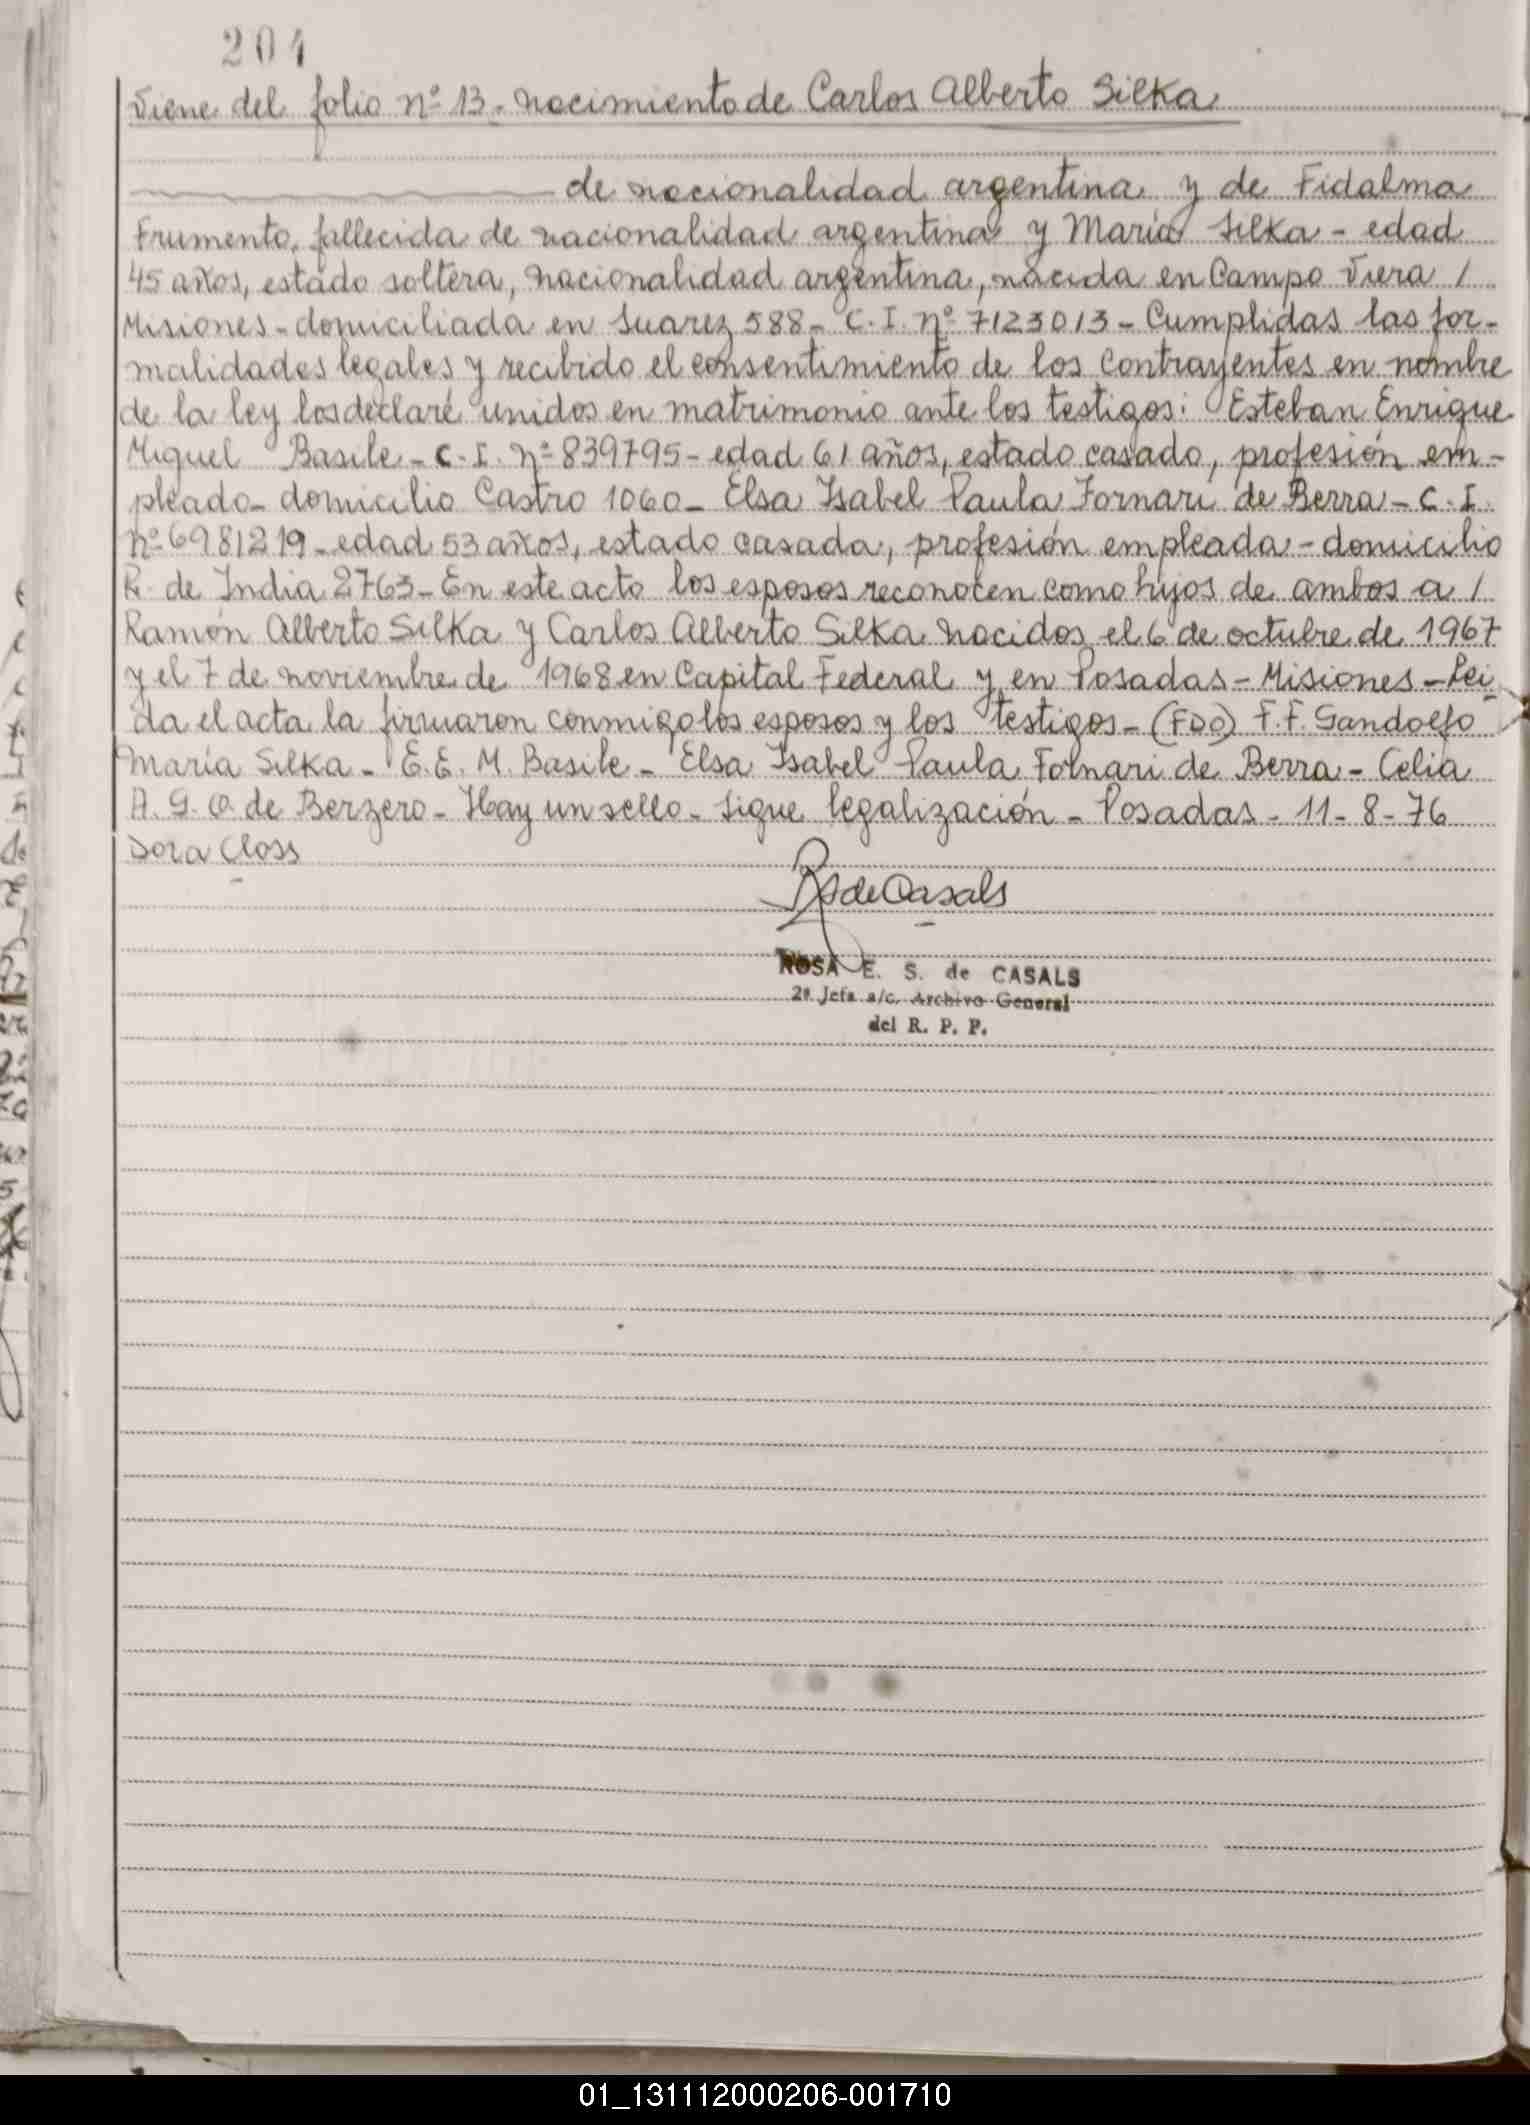 204
Viene del folio nº 13. nacimiento de Carlos Alberto Silka
de nacionalidad argentina y de Fidalma
Frumento, fallecida de nacionalidad argentina y María Silka - edad
45 años, estado soltera, nacionalidad argentina, nacida en Campo Viera /
Misiones - domiciliada en Suarez 588 - C. I. nº 7123013 - Cumplidas las for-
malidades legales y recibido el consentimiento de los contrayentes en nombre
de la ley los declaré unidos en matrimonio ante los testigos: Esteban Enrique
Miguel Basile - C. I. nº 839795 - edad 61 años, estado casado, profesión em-
pleado - domicilio Castro 1060 - Elsa Isabel Paula Fornari de Berra - C. I.
nº 6981219 - edad 53 años, estado casada, profesión empleada - domicilio
R. de India 2763 - En este acto los esposos reconocen como hijos de ambos a /
Ramón Alberto Silka y Carlos Alberto Silka nacidos el 6 de octubre de 1967
y el 7 de noviembre de 1968 en Capital Federal y en Posadas - Misiones - Lei-
da el acta la firmaron conmigo los esposos y los testigos - (FDO) F. F. Gandolfo
María Silka - E. E. M. Basile - Elsa Isabel Paula Fornari de Berra - Celia
A. G. O. de Berzero - Hay un sello - Sigue legalización - Posadas - 11 - 8 - 76
Dora Closs
RS de Casals
ROSA E. S. de CASALS
2ª Jefa a/c. Archivo General
del R. P. P.
01_131112000206-001710